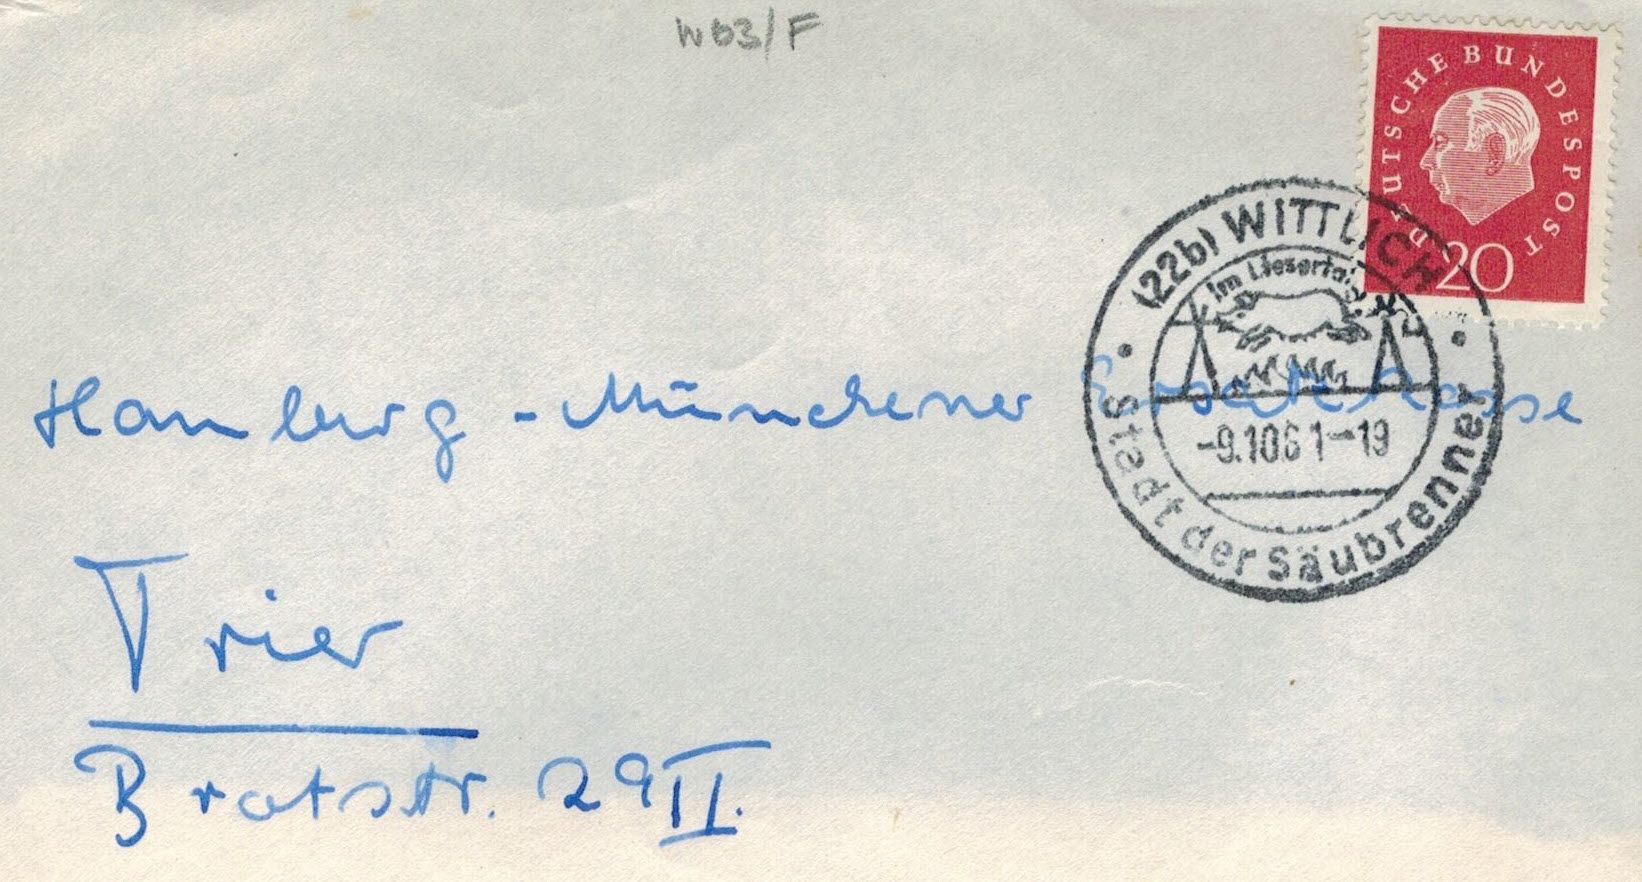 W63/F
DEUTSCHE BUNDESPOST
20
(22b) WITTLICH
im Liesertal
-9.1061-19
Stadt der Säubrenner
Hamburg - Münchener Ersatzkasse
Trier
Brotstr. 29 II.